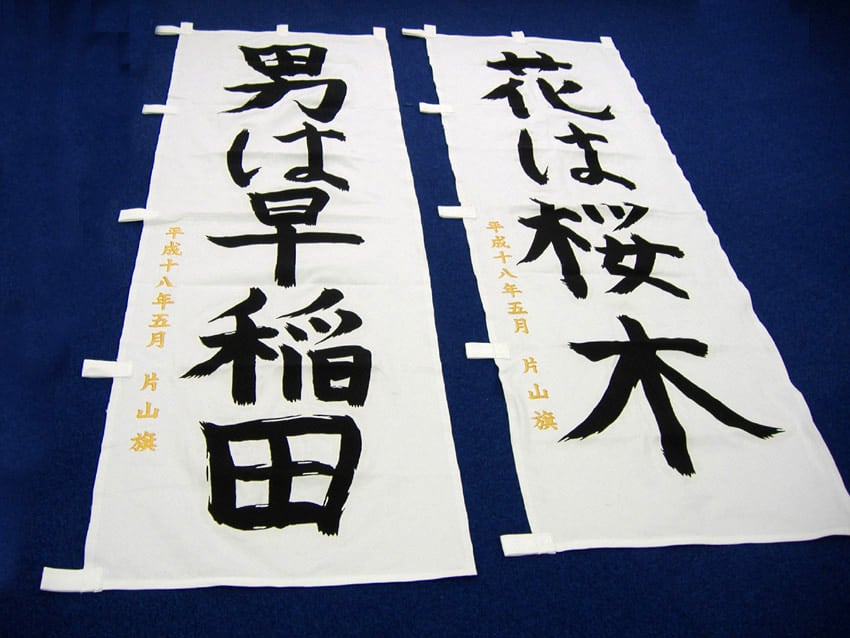 花は桜木
平成十八年五月 片山旗
男は早稲田
平成十八年五月 片山旗